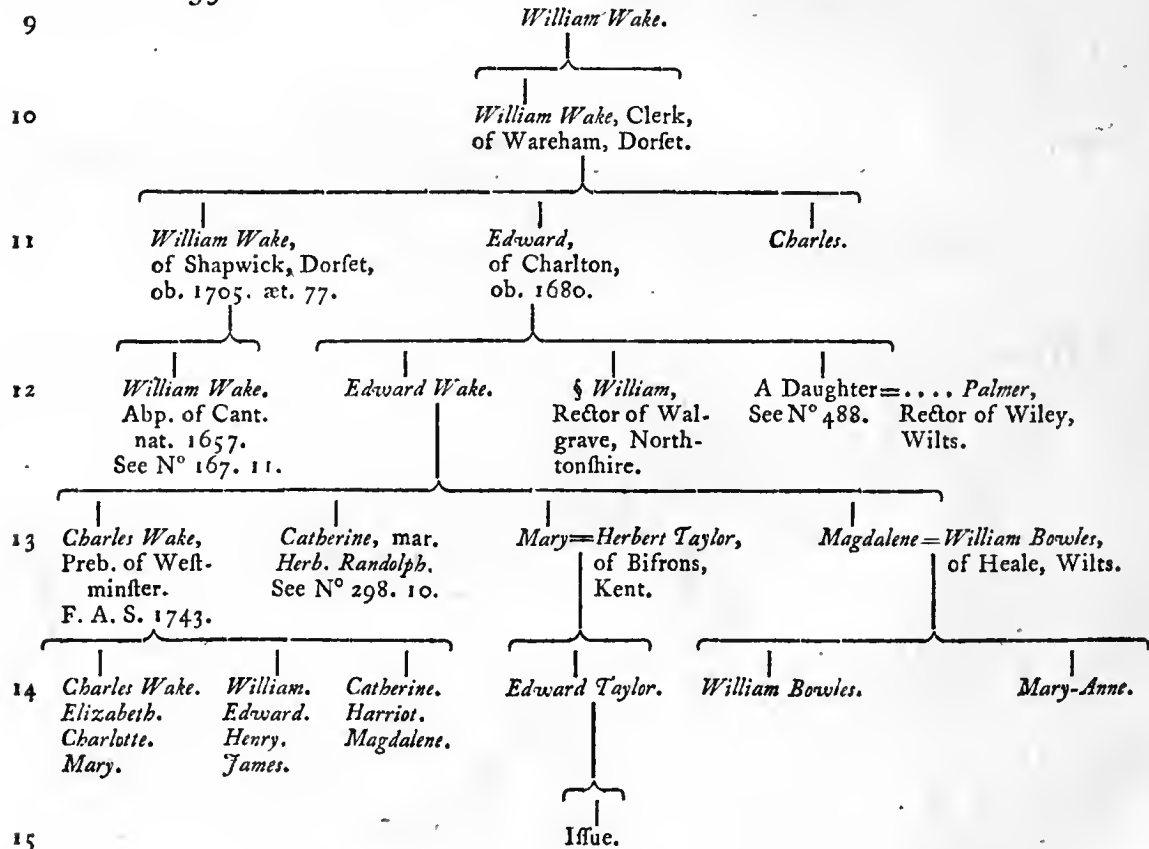 9 William Wake.
10 William Wake, Clerk,
of Wareham, Dorſet.
11 William Wake,
of Shapwick, Dorſet,
ob. 1705. æt. 77.
Edward,
of Charlton,
ob. 1680.
Charles.
12 William Wake.
Abp. of Cant.
nat. 1657.
See N° 167. 11.
Edward Wake.
§ William,
Rector of Wal-
grave, North-
tonſhire.
A Daughter=.... Palmer,
See N° 488. Rector of Wiley,
Wilts.
13 Charles Wake,
Preb. of Weſt-
minſter.
F. A. S. 1743.
Catherine, mar.
Herb. Randolph.
See N° 298. 10.
Mary=Herbert Taylor,
of Bifrons,
Kent.
Magdalene=William Bowles,
of Heale, Wilts.
14 Charles Wake.
Elizabeth.
Charlotte.
Mary.
William.
Edward.
Henry.
James.
Catherine.
Harriot.
Magdalene.
Edward Taylor.
William Bowles.
Mary-Anne.
15 Iſſue.